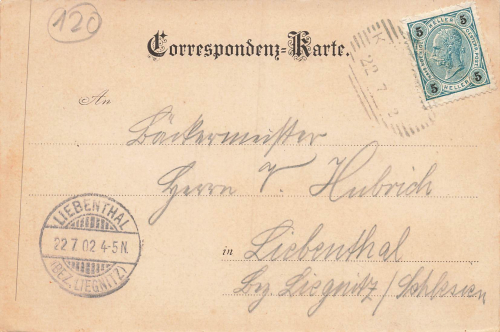 120
Correspondenz-Karte.
5 HELLER 5
5 HELLER 5
22 7
An
Bäckermeister
Herrn Hubrich
LIEBENTHAL
22.7.02 4-5N.
(BEZ. LIEGNITZ)
in Liebenthal
Bez Liegnitz / Schlesien